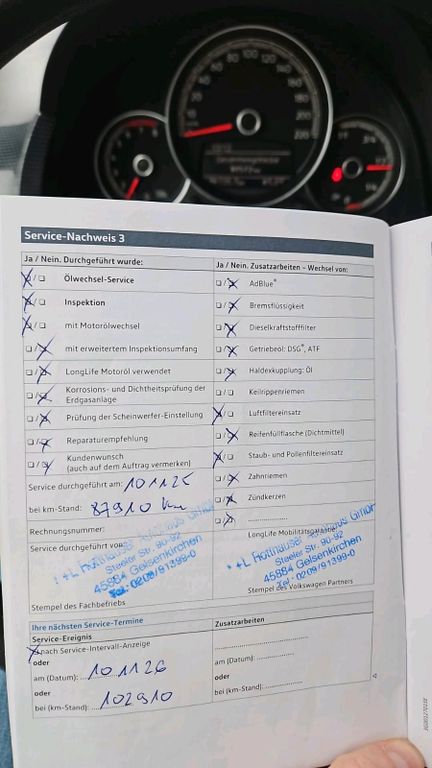 Service-Nachweis 3
Ja / Nein. Durchgeführt wurde:
Ölwechsel-Service
Inspektion
mit Motorölwechsel
mit erweitertem Inspektionsumfang
LongLife Motoröl verwendet
Korrosions- und Dichtheitsprüfung der
Erdgasanlage
Prüfung der Scheinwerfer-Einstellung
Reparaturempfehlung
Kundenwunsch
(auch auf dem Auftrag vermerken)
Service durchgeführt am: 10 11 25
bei km-Stand: 87910 km
Rechnungsnummer:
Service durchgeführt von:
Steeler Str. 90-92
45884 Gelsenkirchen
Tel.: 0209/91399-0
Stempel des Fachbetriebs
Ja / Nein. Zusatzarbeiten – Wechsel von:
AdBlue®
Bremsflüssigkeit
Dieselkraftstofffilter
Getriebeöl: DSG®, ATF
Haldexkupplung: Öl
Keilrippenriemen
Luftfiltereinsatz
Reifenfüllflasche (Dichtmittel)
Staub- und Pollenfiltereinsatz
Zahnriemen
Zündkerzen
LongLife Mobilitätsgarantie:
Steeler Str. 90-92
45884 Gelsenkirchen
Tel.: 0209/91399-0
Stempel des Volkswagen Partners
Ihre nächsten Service-Termine
Service-Ereignis
nach Service-Intervall-Anzeige
oder
am (Datum): 10 11 26
oder
bei (km-Stand): 102910
Zusatzarbeiten
am (Datum):
oder
bei (km-Stand):